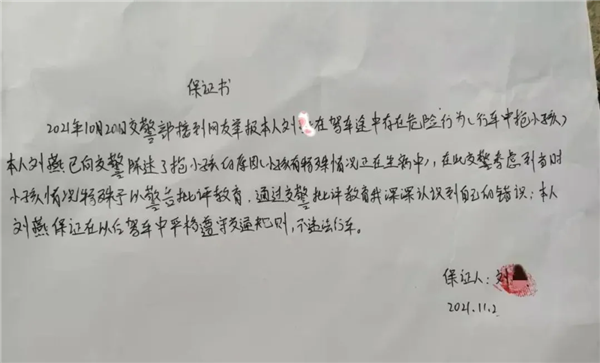 保证书
2021年10月20日交警部接到网友举报本人刘在驾车途中存在危险行为（行车中抱小孩）
本人刘燕已向交警陈述了抱小孩的原因（小孩有特殊情况正在生病中），在此交警考虑到当时
小孩情况特殊予以警告批评教育，通过交警批评教育我深深认识到自己的错误；本人
刘燕保证在以后驾车中严格遵守交通规则，不违法行车。
保证人：刘
2021.11.2